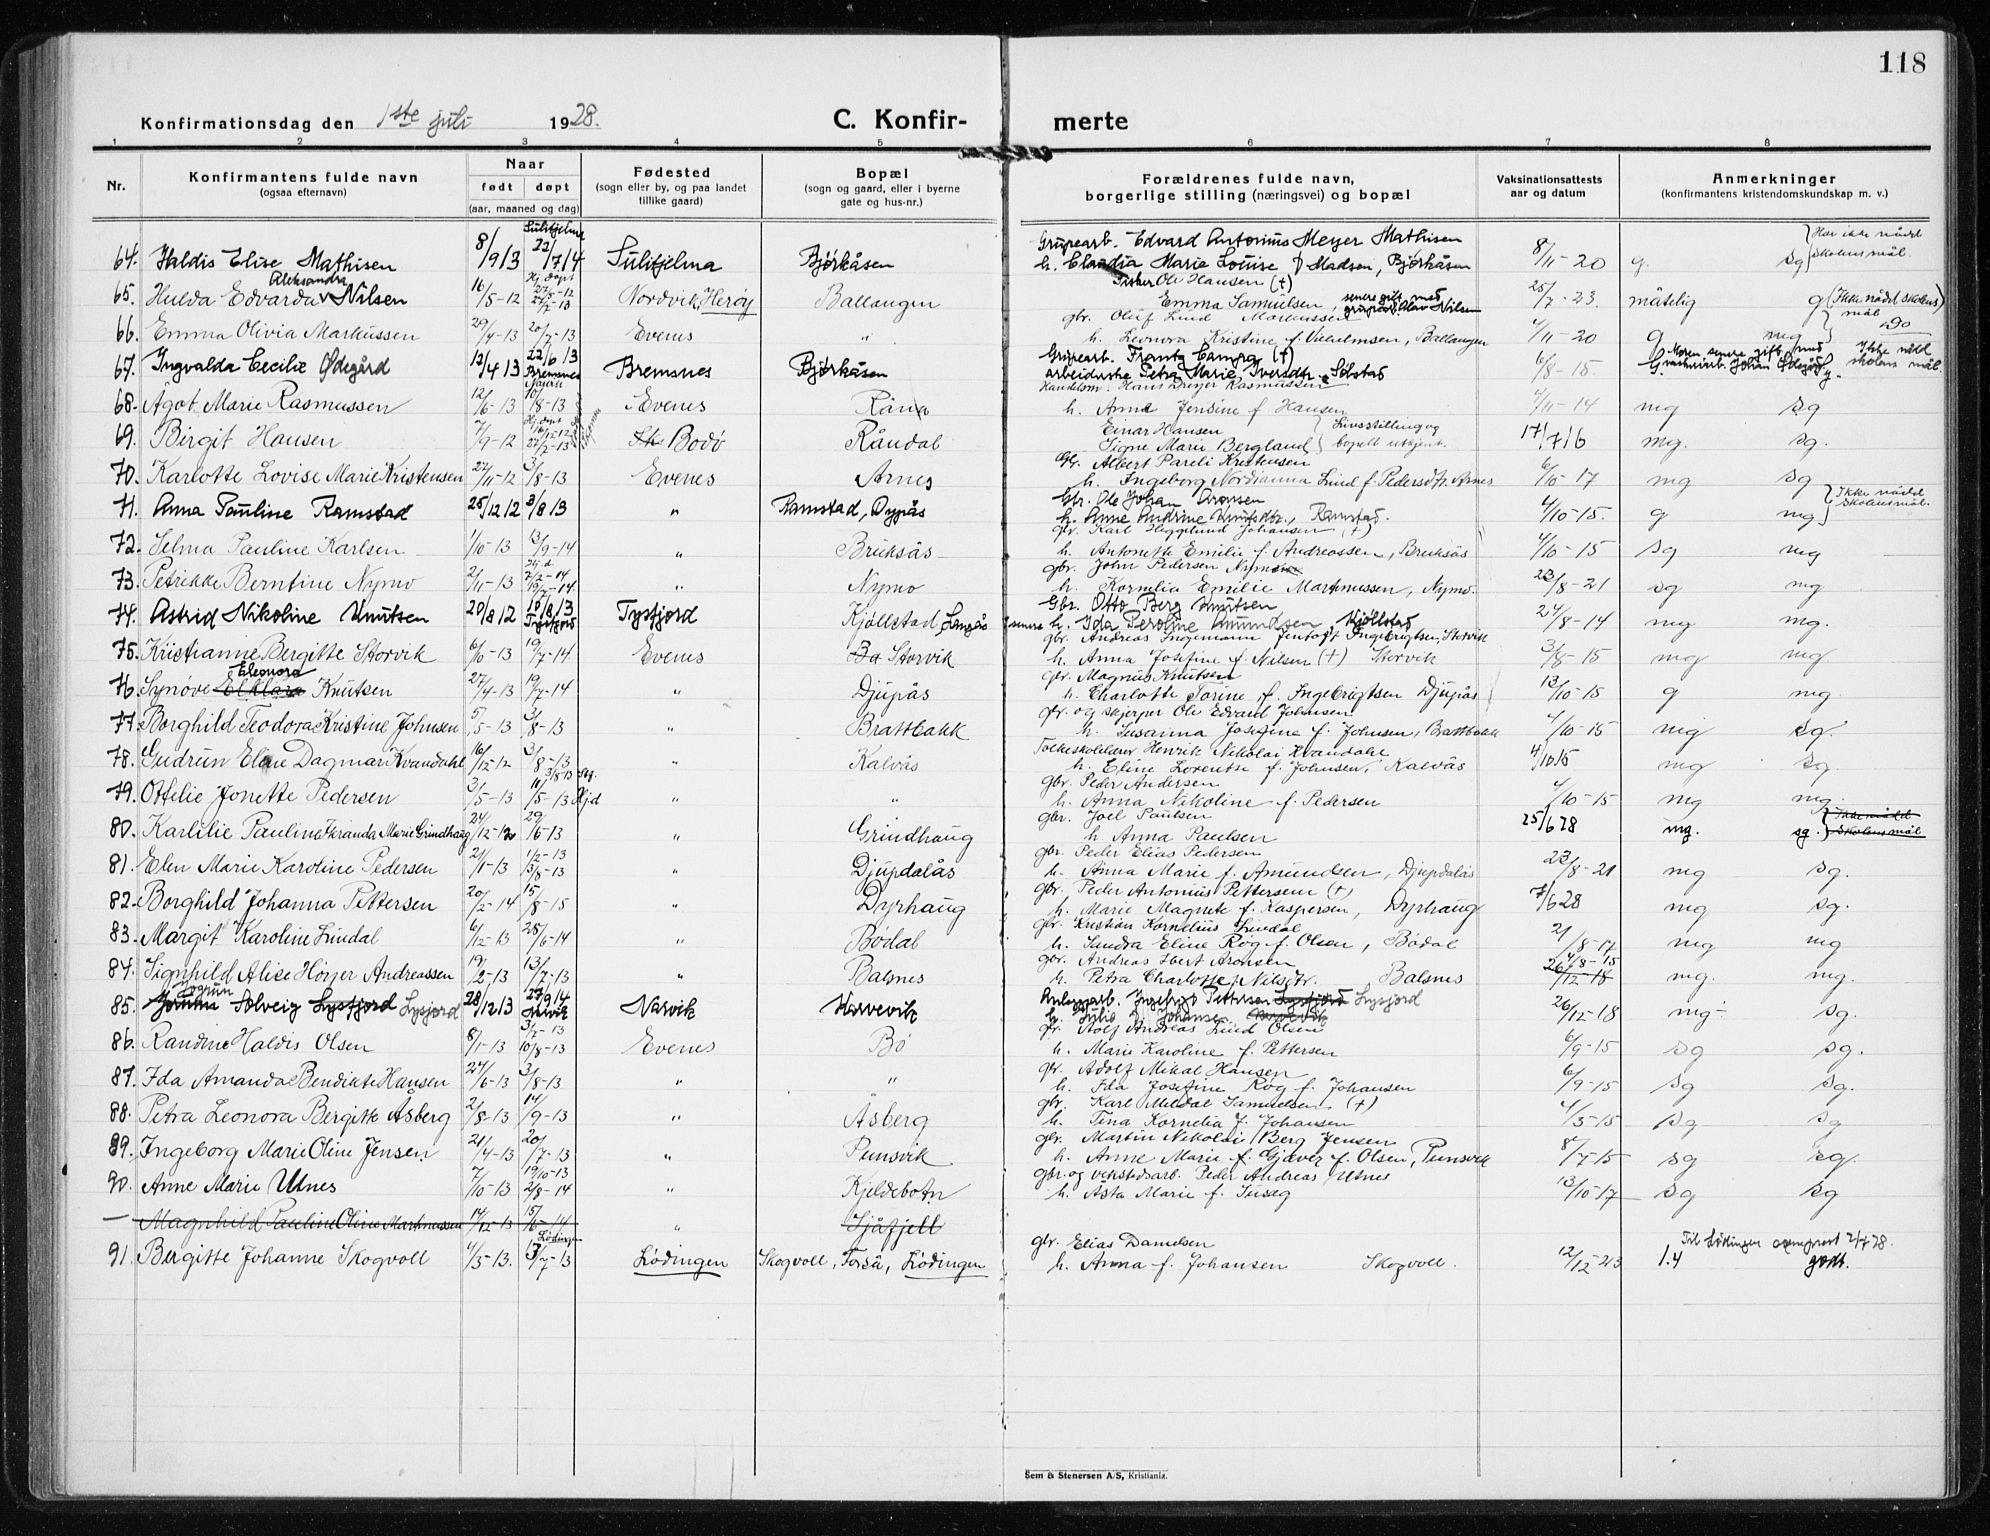 118
Konfirmationsdag den 1ste juli 1928.
C. Konfir- merte
1 2 3 4 5 6 7 8
Nr.
Konfirmantens fulde navn
(ogsaa efternavn)
Naar
født døpt
(aar, maaned og dag)
Fødested
(sogn eller by, og paa landet
tillike gaard)
Bopæl
(sogn og gaard, eller i byerne
gate og hus-nr.)
Forældrenes fulde navn,
borgerlige stilling (næringsvei) og bopæl
Vaksinationsattests
aar og datum
Anmerkninger
(konfirmantens kristendomskundskap m. v.)
Sulitjelma
Grupearb. Edvard Antonius Meyer Mathisen
Har ikke nådd
64. Haldis Elise Mathisen 8/9 13 22/7 14 Sulitjelma Bjørkåsen h. Claudia Marie Louise f. Madsen, Bjørkåsen 8/11-20 g. sg skolens mål.
Aleksandra
Fisker Oli Hansen (†)
65. Hulda Edvarda Nilsen 16/5-12 Nordvik, Herøy Ballangen Emma Samuelsen, senere gift med grubearb. Olav Nilsen 25/7-23. måtelig g (Ikke nådd skolens mål)
gbr. Oluf Lind Markussen
66. Emma Olivia Markussen 29/4-13 20/7-13 Evenes " h. Leonora Kristine f. Vilhelmsen, Ballangen 4/11-20 g mg do
Grupearb. Frantz (†)
67. Ingvalda Cecilie Ødegård 12/4 13 22/6 13 Bremsnes Bremsnes Bjørkåsen arbeiderske Petra Marie Iversdtr. Solstad 6/8-15. G. Moren senere gift med Johan Ødegård g. Ikke nådd skolens mål.
Handelsm. Hans Dreyer Rasmussen
68. Ågot Marie Rasmussen 12/6-13 10/8-13 Evenes Råna h. Anna Jensine f. Hansen 4/11-14 mg sg
Einar Hansen
69. Birgit Hansen 7/9-12 27/7-13 Bodø Råndal Signe Marie Bergland Livsstilling og bopell ukjent. 17/7 16 mg. sg.
Gbr. Albert Pareli Kristensen
70. Karlotte Lovise Marie Kristensen 27/11-12 3/8-13 Evenes Arnes h. Ingeborg Nordianna Lind f. Pedersdtr. Arnes 6/10-17 mg sg
Gbr. Ole Johan Aronsen
71. Anna Pauline Ramstad 25/12 12 3/8 13 " Ramstad, Dypås h. Anne Andrine Knutsdtr., Ramstad. 4/10-15. g mg Ikke nådd skolens mål.
gbr. Karl Hegglund Johansen (†)
72. Selma Pauline Karlsen 1/10-13 13/9-14 " Bruksås h. Antonette Emilie f. Andreassen, Bruksås 4/10-15 sg mg
gbr. John Pedersen Nymo
73. Petrikke Berntine Nymo 2/11-13 19/7-14. " Nymo h. Kornelia Emilie Markmussen, Nymo. 23/8-21 sg mg
Gbr. Otto Berg Knutsen
74. Astrid Nikoline Knutsen 20/8 12 10/8 13 Tysfjord Tysfjord Kjøllstad, h. Ida Peroline Amundsen, Kjøllstad 24/8-14 mg mg.
gbr. Andreas Ingemann Jentoft Ingebrigtsen, Storvik
75. Kristianne Bergitte Storvik 6/10-13 19/7-14 Evenes Storvik h. Anna Josefine f. Nilsen (†) Storvik 3/8-15 mg mg
Eleonora
gbr. Magnus Knutsen
76. Synøve Elklara Knutsen 27/4-13 19/7-14 " Djupås h. Charlotte Torine f. Ingebrigtsen Djupås 13/10-15 g mg.
gbr. og skjerper Ole Edvard Johnsen
77. Borghild Teodora Kristine Johnsen 5/5-13 3/8-13 " Brattbakk h. Susanna Josefine f. Johnsen, Brattbakk 4/10-15 mg sg.
Folkeskolelærer Henrik Nikolai Kvandahl
78. Gudrun Eline Dagmar Kvandahl 16/12-12 3/8-13 " Kalvås h. Eline Lorentse f. Johnsen, Kalvås 4/10 15 mg sg.
gbr. Peder Andersen
79. Ottelie Jonette Pedersen 3/5-13 11/5-13 Hjd " " h. Anna Nikoline f. Pedersen 4/10-15 mg mg.
gbr. Joel Paulsen
80. Karlilie Pauline Iranda Marie Grindhaug 24/12-12 29/6-13 " Grindhaug h Anna Paulsen 25/6 28 mg. sg. Ikke nådd skolens mål
gbr. Peder Elias Pedersen
81. Elen Marie Karoline Pedersen 21/1-13 3/8-13 " Djupdalås h. Anna Marie f. Amundsen, Djupdalås 23/8-21 mg sg.
gbr. Peder Antonius Pettersen (†)
82. Borghild Johanna Pettersen 20/2-14 15/8-15 " Dyrhaug h. Marie Magnete f. Kaspersen, Dyrhaug 7/6 28 mg sg.
gbr. Kristian Kornelius Lindal
83. Margit Karoline Lindal 6/12-13 28/6-14 " Bødal h. Sandra Eline Røg f. Olsen, Bødal 21/8-17 mg mg
gbr. Andreas Hbert Aronsen
84. Signhild Alise Høyer Andreassen 19/2-13 13/7-13 " Balsnes h. Petra Charlotte Nilsdtr. Balsnes 4/8-15 26/12-18 mg. mg.
Jogrun
Anleggarb. Ingebrigt Pettersen Lysfjord Lysjord
85. Jorunn Solveig Lysfjord Lysjord 28/12 13 27/9 14 Narvik Narvik h. Julie Johansen 26/12-18 mg- sg.
gbr. Rolf Andreas Lind Olsen
86. Randine Haldis Olsen 8/1-13 10/8-13 Evenes Bø h. Marie Karoline f. Pettersen 6/9-15 sg sg.
gbr. Adolf Mikal Hansen
87. Ida Amanda Bendikte Hansen 24/6-13 3/8-13 " " h. Ida Josefine Røg f. Johansen 6/9-15 sg sg.
gbr. Karl Mikal Samuelsen (†)
88. Petra Leonora Bergitte Åsberg 2/8-13 14/9-13 " Åsberg h. Tina Kornelia f. Johansen 4/5-15 sg sg
gbr. Martin Nikolai Berg Jensen
89. Ingeborg Marie Oline Jensen 21/4-13 20/7-13 " Punsvik h. Anne Marie f. Gjæver f. Olsen, Punsvik 8/7-15 sg sg.
gbr. og verkstedsarb. Peder Andreas Utnes
90. Anne Marie Utnes 7/10-13 19/10-13 2/8-14 " Kjeldebotn h. Asta Marie f. Suseg 13/10-17 sg sg
— Magnhild Pauline Oline Markmussen 14/12-13 15/6-14 " Sjåfjell
gbr. Elias Danielsen
Til Lødingen 2/7 28.
91. Bergitte Johanne Skogvoll 4/3-13. 13/7-13 Lødingen Lødingen Skogvoll, Forså, Lødingen h. Anna f. Johansen Skogvoll. 12/12-23 1.4 godt.
Sem & Stenersen A/S, Kristiania.